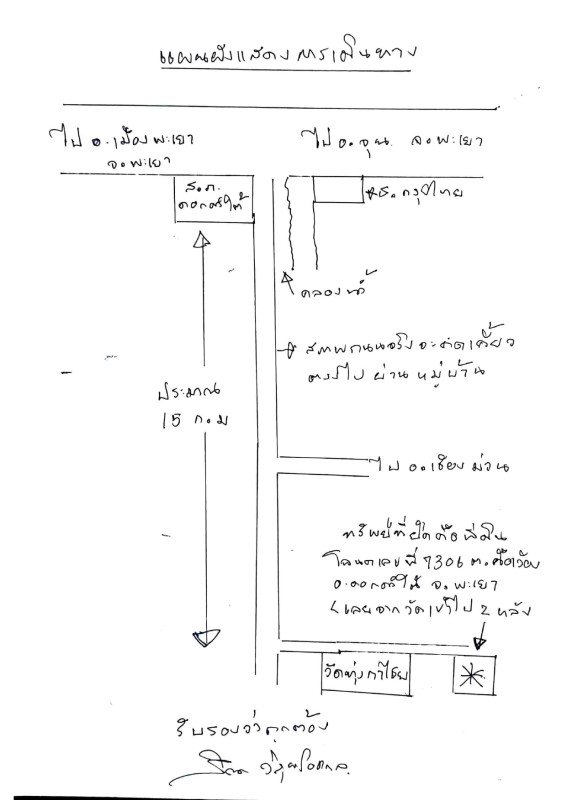 แผนผังแสดงการเดินทาง
ไป อ.เมืองพะเยา
จ.พะเยา
ไป อ.จุน จ.พะเยา
ส.ภ.
ดอกคำใต้
ธ.กรุงไทย
คลองน้ำ
สภาพถนนจริงจะคดเคี้ยว
ตรงไป ผ่านหมู่บ้าน
ประมาณ
15 ก.ม
ไป อ.เชียงม่วน
ทรัพย์ที่ยึดคือที่ดิน
โฉนดเลขที่ 7306 ต.
อ.ดอกคำใต้ จ.พะเยา
เลยจากวัดเข้าไป 2 หลัง
วัดทุ่งกาไชย
รับรองว่าถูกต้อง